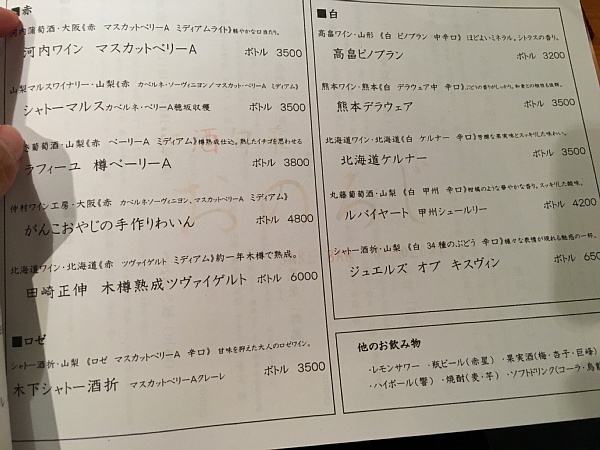 ■赤
河内葡萄酒・大阪《赤 マスカットベリーA ミディアムライト》軽やかな口当たり。
河内ワイン マスカットベリーA ボトル 3500
山梨マルスワイナリー・山梨《赤 カベルネ・ソーヴィニヨン/マスカット・ベリーA ミディアム》
シャトーマルス カベルネ・ベリーA穂坂収穫 ボトル 3500
葡萄酒・山梨《赤 ベーリーA ミディアム》樽熟成仕込。熟したイチゴを思わせる
ラフィーユ 樽ベーリーA ボトル 3800
仲村ワイン工房・大阪《赤 カベルネソーヴィニヨン、マスカットベリーA ミディアム》
がんこおやじの手作りわいん ボトル 4800
北海道ワイン・北海道《赤 ツヴァイゲルト ミディアム》約一年木樽で熟成。
田崎正伸 木樽熟成ツヴァイゲルト ボトル 6000
■ロゼ
シャトー酒折・山梨《ロゼ マスカットベリーA 辛口》甘味を抑えた大人のロゼワイン。
木下シャトー酒折 マスカットベリーAクレーレ ボトル 3500
■白
高畠ワイン・山形《白 ピノブラン 中辛口》ほどよいミネラル。シトラスの香り。
高畠ピノブラン ボトル 3200
熊本ワイン・熊本《白 デラウェア 中 辛口》ぶどうの香りがしっかり。和食との相性も抜群。
熊本デラウェア ボトル 3500
北海道ワイン・北海道《白 ケルナー 辛口》芳醇な果実味とスッキリした味わい。
北海道ケルナー ボトル 3500
丸藤葡萄酒・山梨《白 甲州 辛口》柑橘のような爽やかな香り。スッキリした酸味。
ルバイヤート 甲州シュールリー ボトル 4200
シャトー酒折・山梨《白 34種のぶどう 辛口》様々な表情が現れる魅惑の一杯。
ジュエルズ オブ キスヴィン ボトル 650
他のお飲み物
・レモンサワー ・瓶ビール(赤星) ・果実酒(梅・杏子・巨峰)
・ハイボール(響) ・焼酎(麦・芋) ・ソフトドリンク(コーラ・烏龍